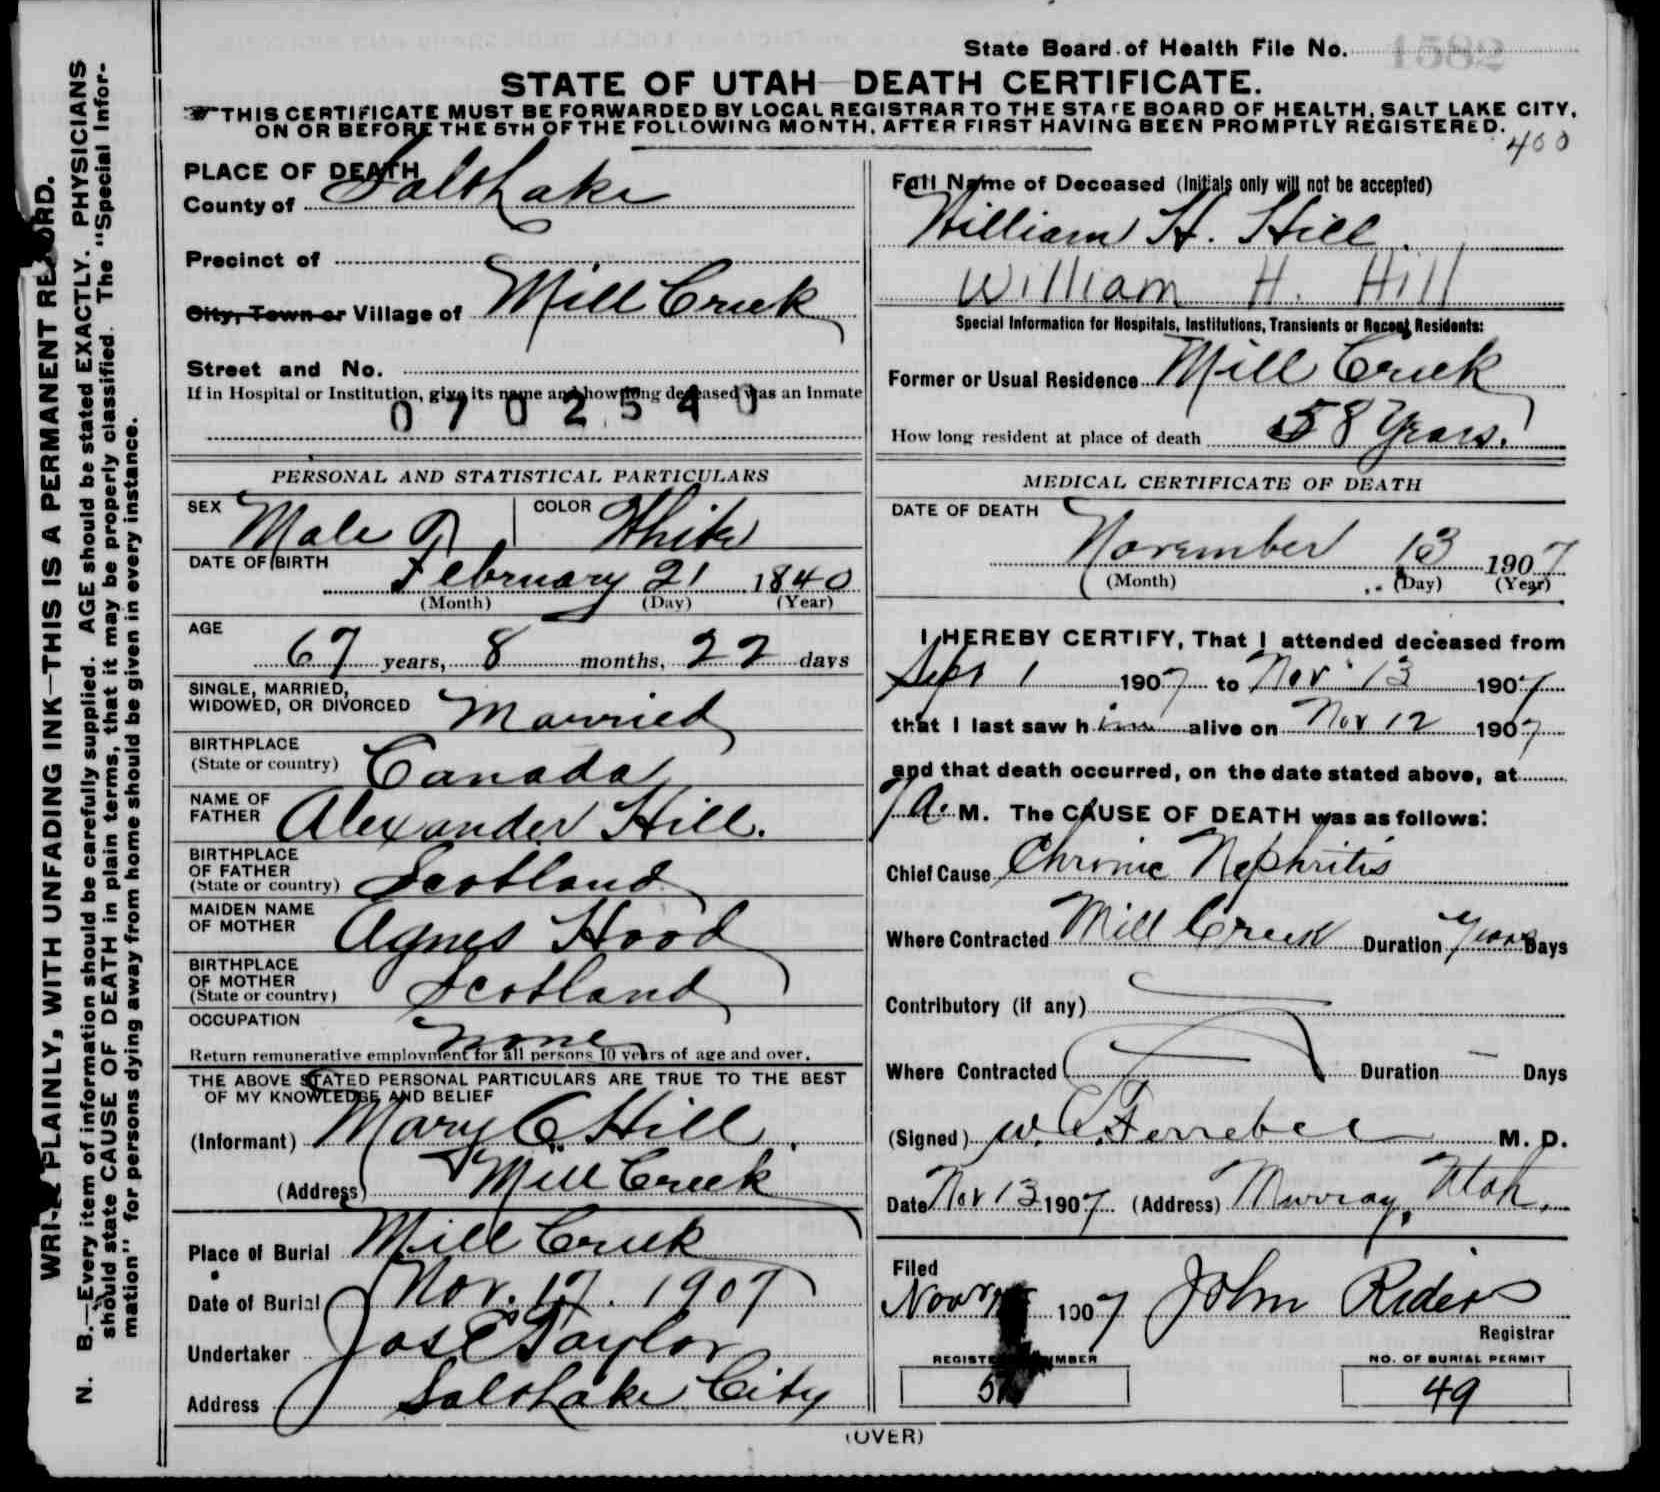 State Board of Health File No. 1582
STATE OF UTAH—DEATH CERTIFICATE.
THIS CERTIFICATE MUST BE FORWARDED BY LOCAL REGISTRAR TO THE STATE BOARD OF HEALTH, SALT LAKE CITY,
ON OR BEFORE THE 5TH OF THE FOLLOWING MONTH, AFTER FIRST HAVING BEEN PROMPTLY REGISTERED.
400
WRITE PLAINLY, WITH UNFADING INK—THIS IS A PERMANENT RECORD.
N. B.—Every item of information should be carefully supplied. AGE should be stated EXACTLY. PHYSICIANS
should state CAUSE OF DEATH in plain terms, that it may be properly classified. The "Special Infor-
mation" for persons dying away from home should be given in every instance.
PLACE OF DEATH
County of Salt Lake
Precinct of
City, Town or Village of Mill Creek
Street and No.
If in Hospital or Institution, give its name and how long deceased was an inmate
0702540
PERSONAL AND STATISTICAL PARTICULARS
SEX Male COLOR White
DATE OF BIRTH February 21 1840
(Month) (Day) (Year)
AGE
67 years, 8 months, 22 days
SINGLE, MARRIED,
WIDOWED, OR DIVORCED Married
BIRTHPLACE
(State or country) Canada
NAME OF
FATHER Alexander Hill.
BIRTHPLACE
OF FATHER
(State or country) Scotland
MAIDEN NAME
OF MOTHER Agnes Hood
BIRTHPLACE
OF MOTHER
(State or country) Scotland
OCCUPATION none
Return remunerative employment for all persons 10 years of age and over.
THE ABOVE STATED PERSONAL PARTICULARS ARE TRUE TO THE BEST
OF MY KNOWLEDGE AND BELIEF
(Informant) Mary C. Hill.
(Address) Mill Creek
Place of Burial Mill Creek
Date of Burial Nov. 17. 1907
Undertaker Jos E Taylor
Address Salt Lake City
Full Name of Deceased (Initials only will not be accepted)
William H. Hill.
William H. Hill
Special Information for Hospitals, Institutions, Transients or Recent Residents:
Former or Usual Residence Mill Creek
How long resident at place of death 58 Years.
MEDICAL CERTIFICATE OF DEATH
DATE OF DEATH
November 13 1907
(Month) (Day) (Year)
I HEREBY CERTIFY, That I attended deceased from
Sept 1 1907 to Nov 13 1907
that I last saw him alive on Nov 12 1907
and that death occurred, on the date stated above, at
7 a. M. The CAUSE OF DEATH was as follows:
Chief Cause Chronic Nephritis
Where Contracted Mill Creek Duration years Days
Contributory (if any)
Where Contracted Duration Days
(Signed) W. C. Ferrebee M. D.
Date Nov 13 1907 (Address) Murray, Utah.
Filed
1907 John Riders
Registrar
REGISTERED NUMBER
NO. OF BURIAL PERMIT
49
(OVER)